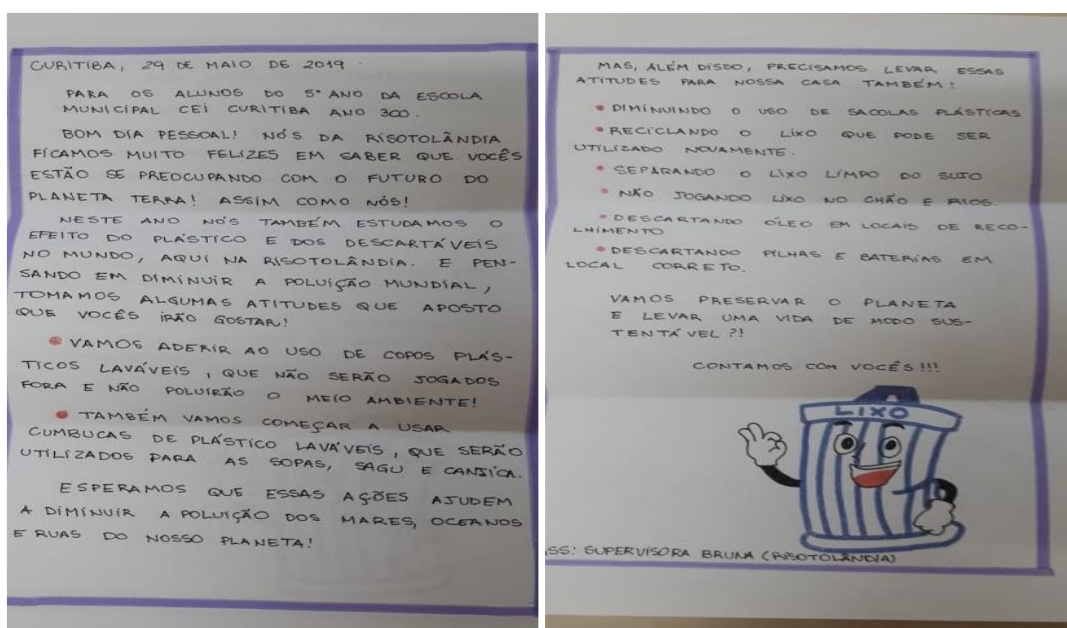 CURITIBA, 29 DE MAIO DE 2019.
PARA OS ALUNOS DO 5º ANO DA ESCOLA
MUNICIPAL CEI CURITIBA ANO 300.
BOM DIA PESSOAL! NÓS DA RISOTOLÂNDIA
FICAMOS MUITO FELIZES EM SABER QUE VOCÊS
ESTÃO SE PREOCUPANDO COM O FUTURO DO
PLANETA TERRA! ASSIM COMO NÓS!
NESTE ANO NÓS TAMBÉM ESTUDAMOS O
EFEITO DO PLÁSTICO E DOS DESCARTÁVEIS
NO MUNDO, AQUI NA RISOTOLÂNDIA. E PEN-
SANDO EM DIMINUIR A POLUIÇÃO MUNDIAL,
TOMAMOS ALGUMAS ATITUDES QUE APOSTO
QUE VOCÊS IRÃO GOSTAR!
• VAMOS ADERIR AO USO DE COPOS PLÁS-
TICOS LAVÁVEIS, QUE NÃO SERÃO JOGADOS
FORA E NÃO POLUIRÃO O MEIO AMBIENTE!
• TAMBÉM VAMOS COMEÇAR A USAR
CUMBUCAS DE PLÁSTICO LAVÁVEIS, QUE SERÃO
UTILIZADOS PARA AS SOPAS, SAGU E CANJICA.
ESPERAMOS QUE ESSAS AÇÕES AJUDEM
A DIMINUIR A POLUIÇÃO DOS MARES, OCEANOS
E RUAS DO NOSSO PLANETA!
MAS, ALÉM DISSO, PRECISAMOS LEVAR ESSAS
ATITUDES PARA NOSSA CASA TAMBÉM!
• DIMINUINDO O USO DE SACOLAS PLÁSTICAS
• RECICLANDO O LIXO QUE PODE SER
UTILIZADO NOVAMENTE.
• SEPARANDO O LIXO LIMPO DO SUJO
• NÃO JOGANDO LIXO NO CHÃO E RIOS.
• DESCARTANDO ÓLEO EM LOCAIS DE RECO-
LHIMENTO
• DESCARTANDO PILHAS E BATERIAS EM
LOCAL CORRETO.
VAMOS PRESERVAR O PLANETA
E LEVAR UMA VIDA DE MODO SUS-
TENTÁVEL?!
CONTAMOS COM VOCÊS!!!
LIXO
ASS: SUPERVISORA BRUNA (RISOTOLÂNDIA)